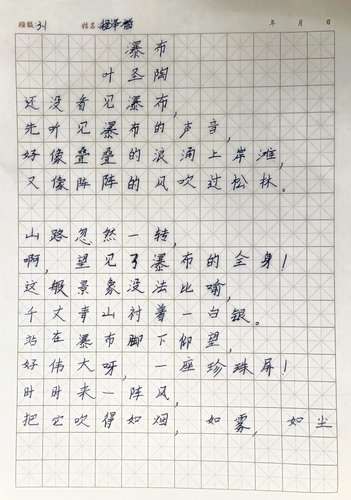 班级 3.1 姓名 年 月 日
瀑布
叶圣陶
还没看见瀑布,
先听见瀑布的声音,
好像叠叠的浪涌上岸滩,
又像阵阵的风吹过松林。
山路忽然一转,
啊,望见了瀑布的全身!
这般景象没法比喻,
千丈青山衬着一白银。
站在瀑布脚下仰望,
好伟大呀,一座珍珠屏!
时时来一阵风,
把它吹得如烟,如雾,如尘